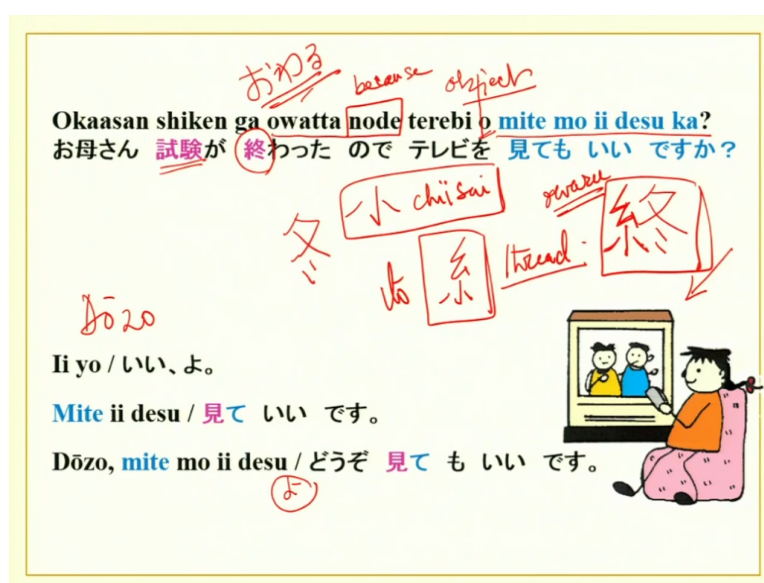 おわる because object
Okaasan shiken ga owatta node terebi o mite mo ii desu ka?
お母さん 試験が 終わった ので テレビを 見ても いい ですか？
冬 小 chiisai owaru 終
ito 糸 thread.
Dōzo
Ii yo / いい、よ。
Mite ii desu / 見て いい です。
Dōzo, mite mo ii desu / どうぞ 見て も いい です。
よ